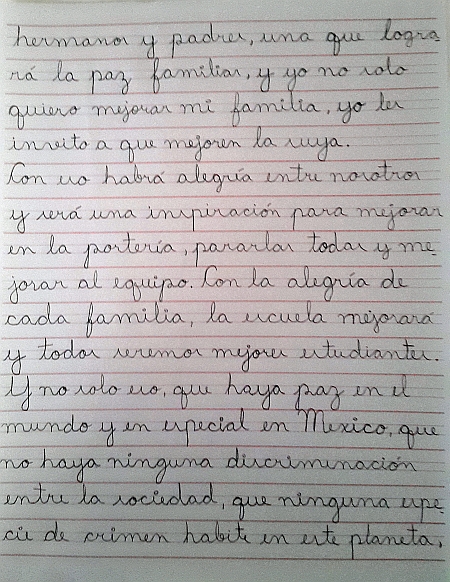 hermanos y padres, una que logra-
rá la paz familiar, y yo no solo
quiero mejorar mi familia, yo les
invito a que mejoren la suya.
Con eso habrá alegría entre nosotros
y será una inspiración para mejorar
en la portería, pararlas todas y me-
jorar al equipo. Con la alegría de
cada familia, la escuela mejorará
y todos seremos mejores estudiantes.
Y no solo eso, que haya paz en el
mundo y en especial en México, que
no haya ninguna discriminación
entre la sociedad, que ninguna espe-
cie de crimen habite en este planeta,